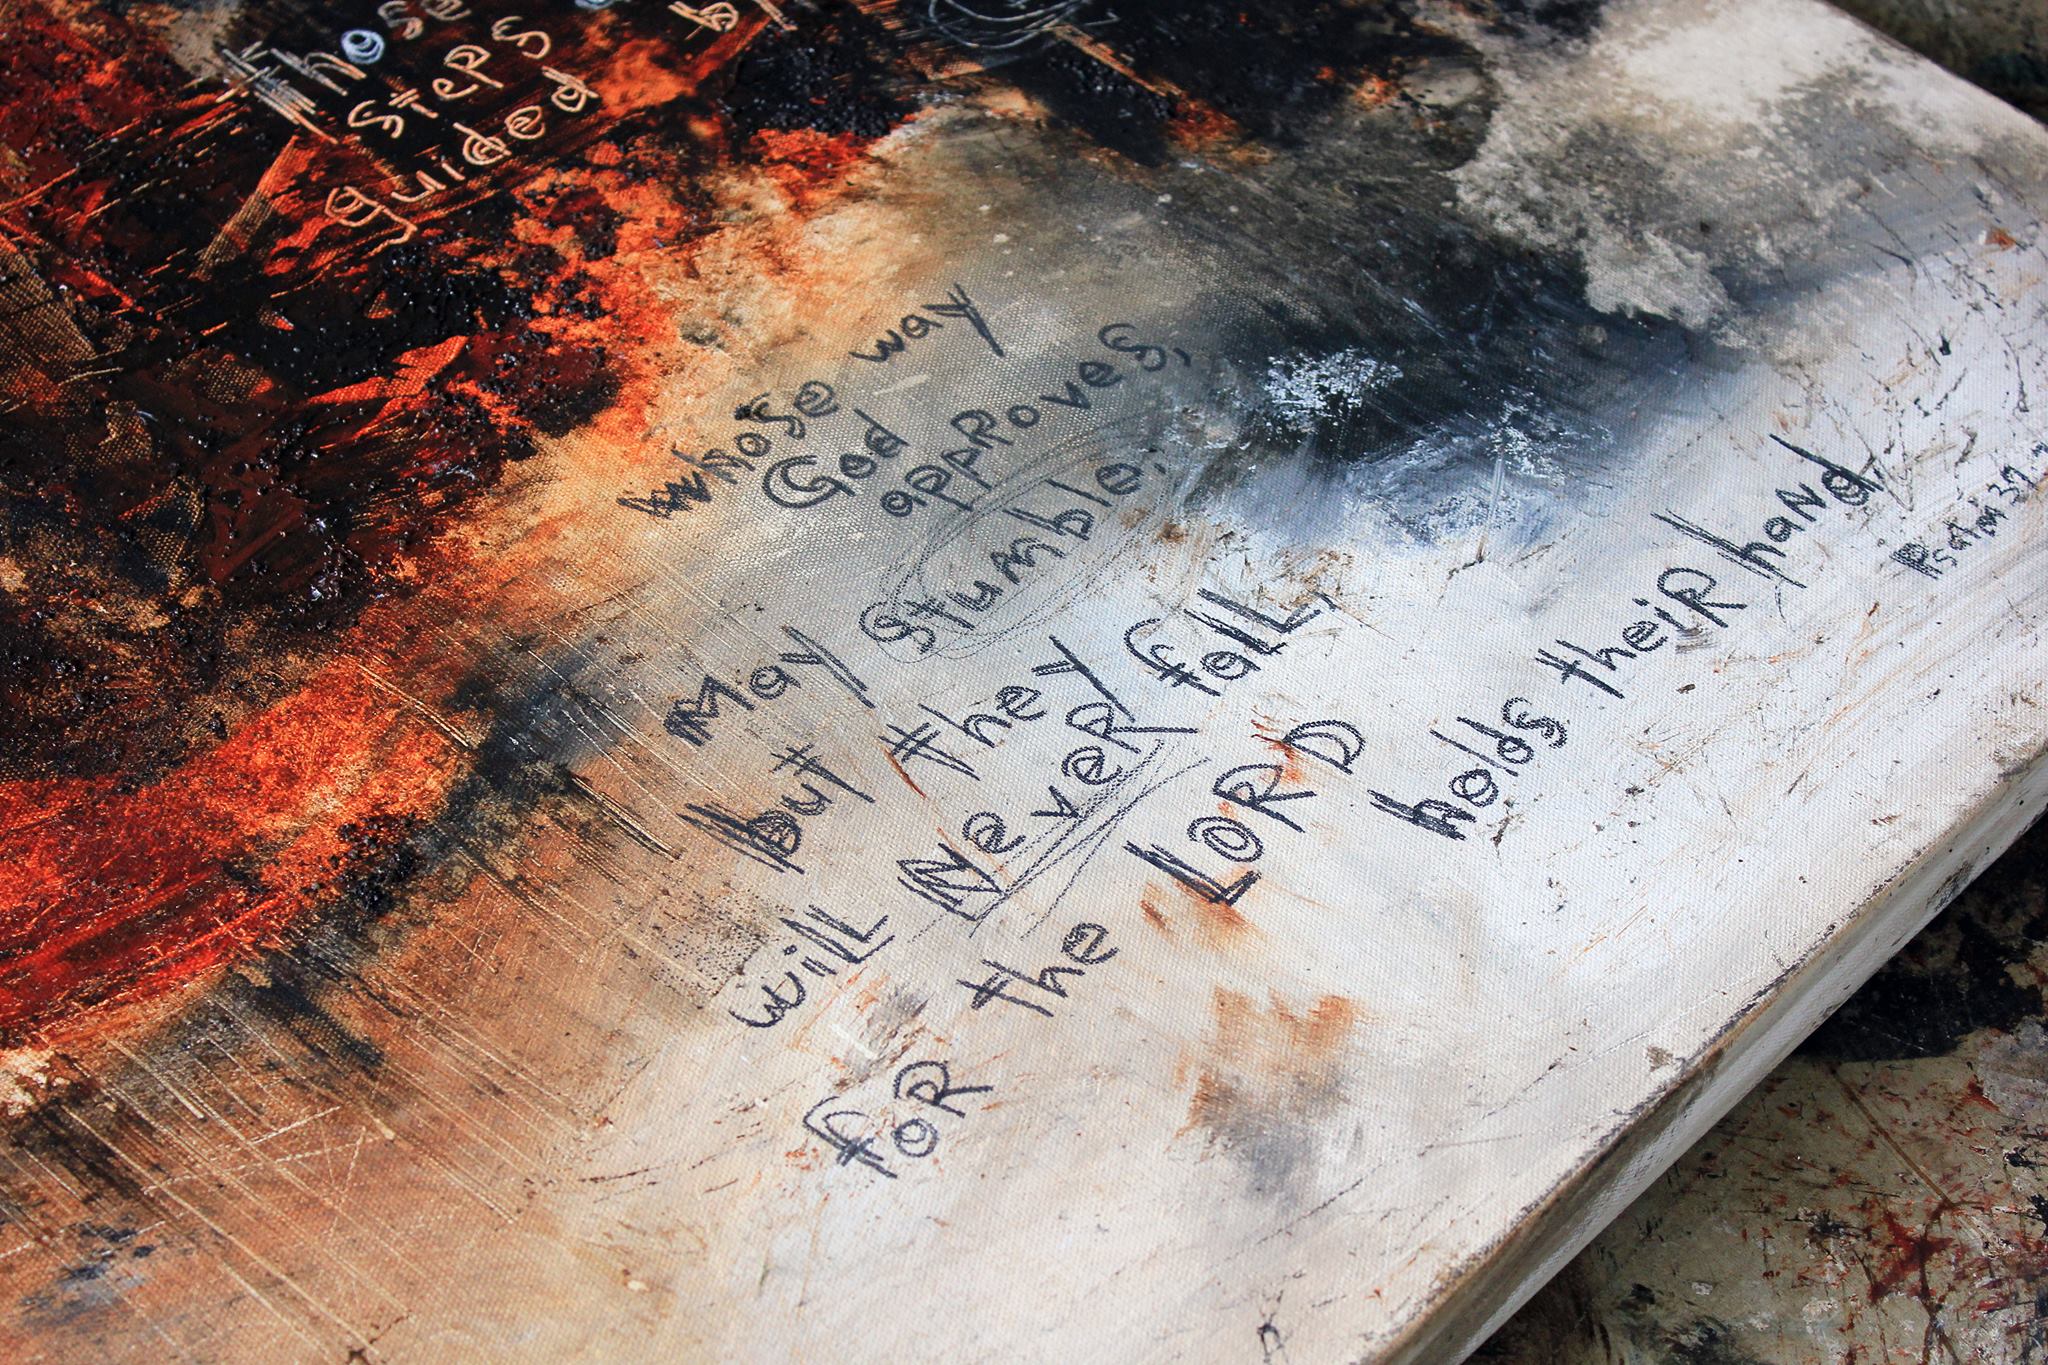 those
steps
guided
whose way
God
approves,
May stumble,
but they
will Never fall,
for the LORD
holds their hand
Psalm 37